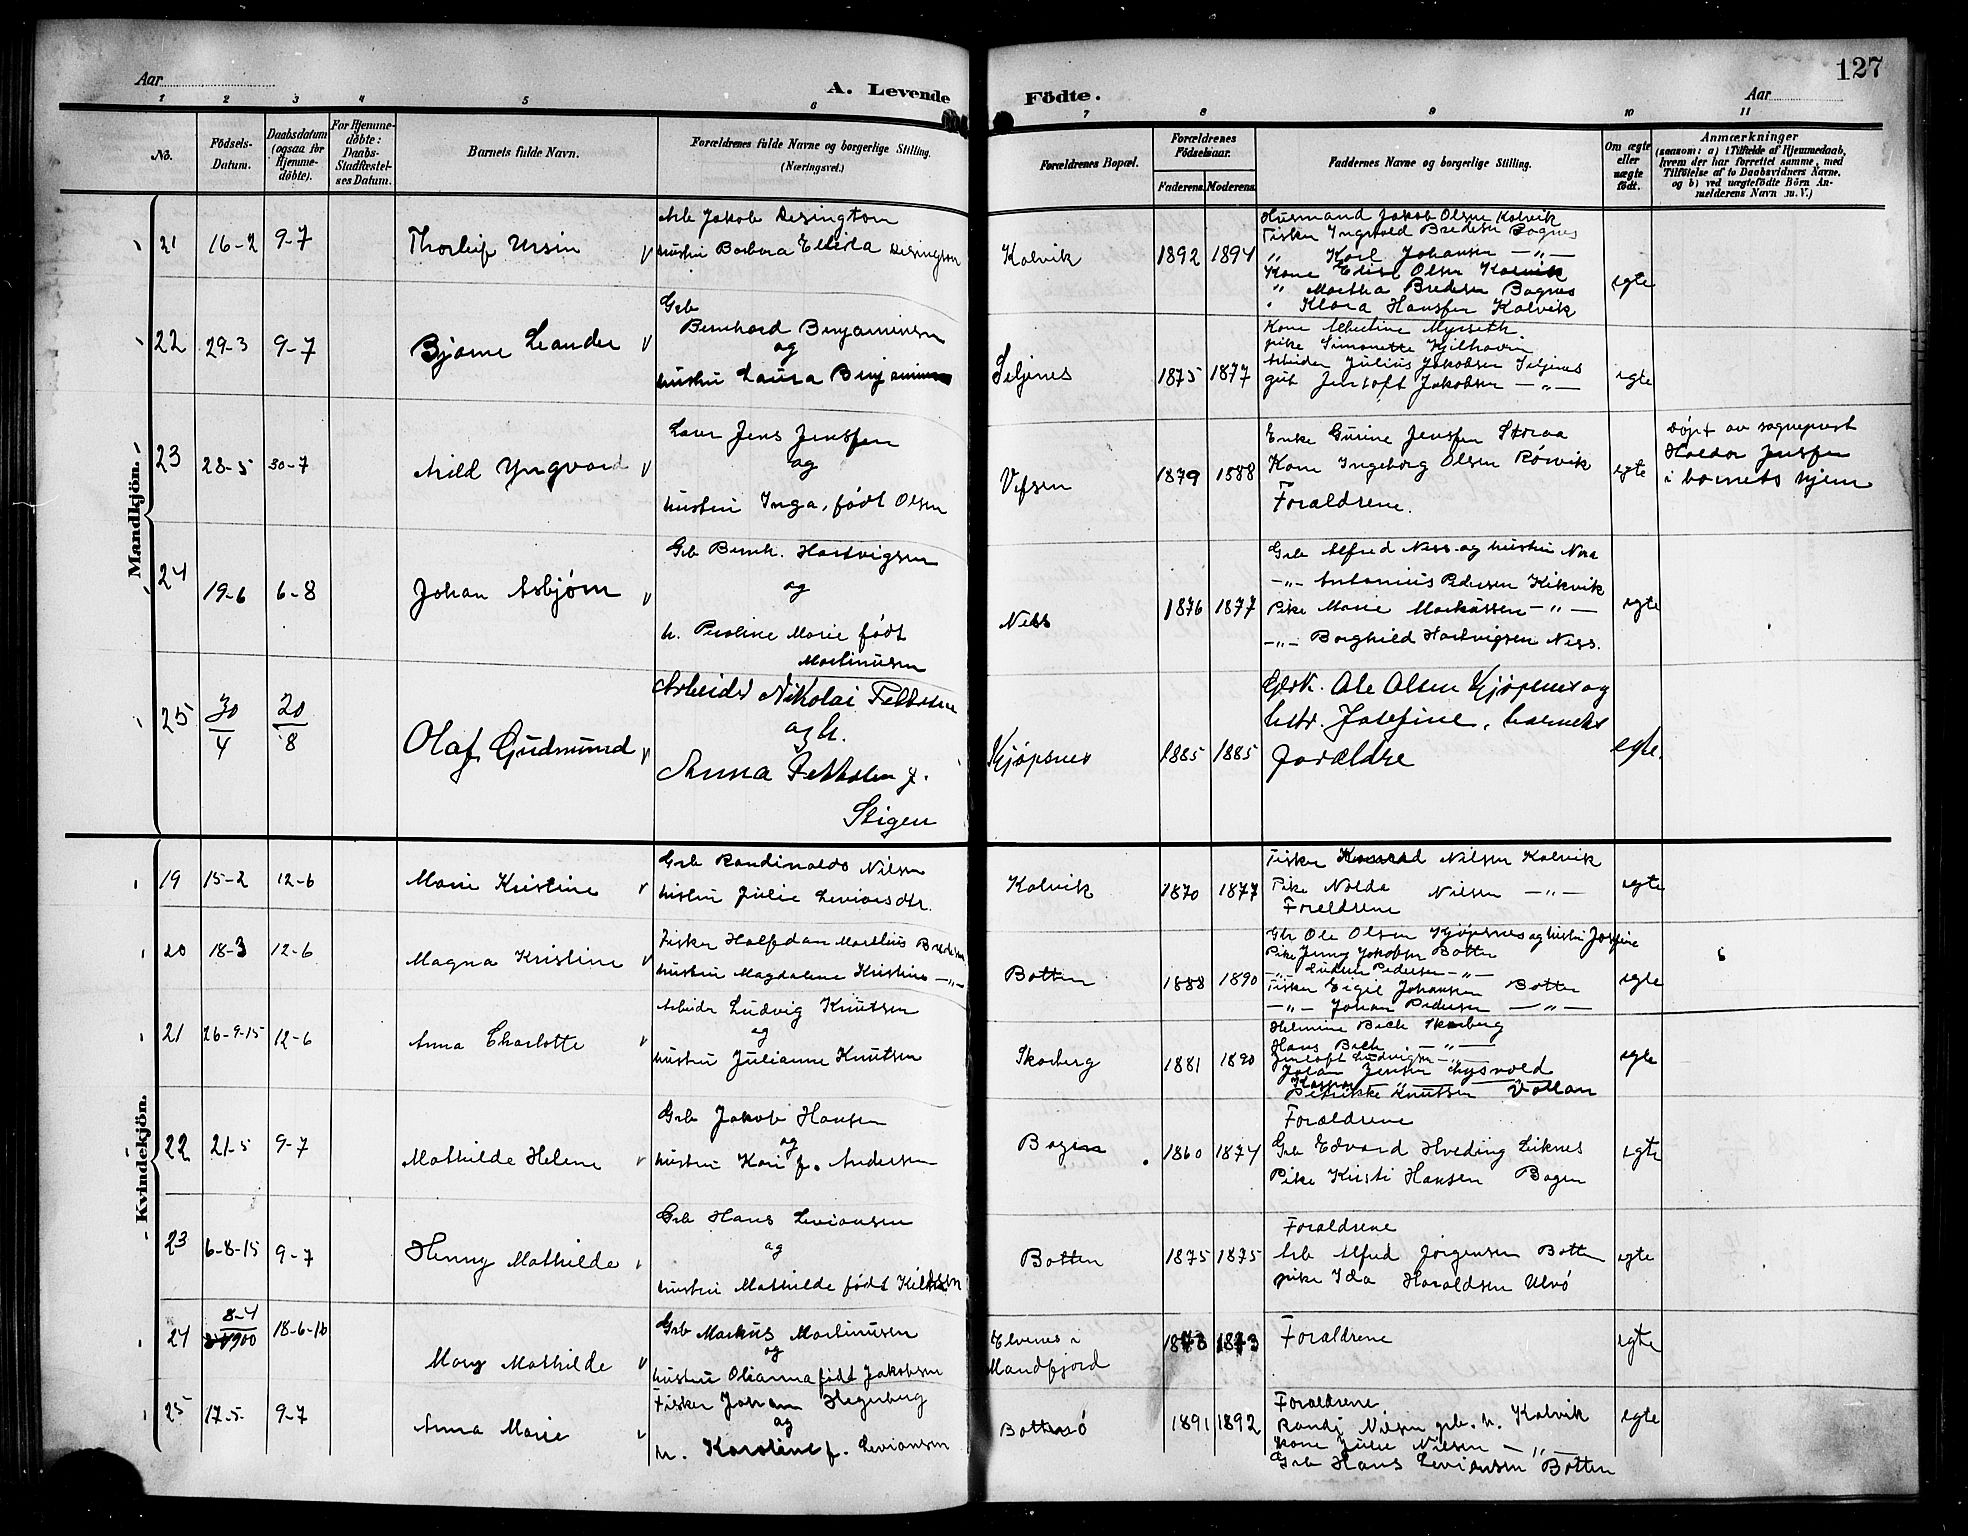 127
Aar
A. Levende
Födte.
Aar
1 2 3 4 5 6 7 8 9 10 11
No.
Födsels-Datum.
Daabsdatum (ogsaa for Hjemme-döbte).
For Hjemme-döbte: Daabs-Stadfæstel-ses Datum.
Barnets fulde Navn.
Forældrenes fulde Navne og borgerlige Stilling.
(Næringsvei.)
Forældrenes Bopæl.
Forældrenes Födselsaar.
Faderens. Moderens.
Faddernes Navne og borgerlige Stilling.
Om ægte eller uægte födt.
Anmærkninger
(saasom: a) i Tilfælde af Hjemmedaab,
hvem der har forrettet samme, med
Tilföielse af to Daabsvidners Navne,
og b) ved uægtefödte Börn An-
melderens Navn m. V.)
Mandkjön.
21 16-2 9-7 Thorleif Ursin
Arb Jakob Desington
hustru Barbara Ellida Desington
Kalvik 1892 1894
Husmand Jakob Olsen Kalvik
Fisker Ingvald Bredesen Bognes
" Karl Johansen —"—
Kone Elise Olsen Kalvik
" Martha Bredesen Bognes
" Klara Hansen Kalvik
egte
22 29-3 9-7 Bjarne Leander
Grb
Bernhard Benjaminsen
og
hustru Laura Benjaminsen
Seljenes 1875 1877
Kone Albertine Myrseth
pike Simonette
Arbeider Julius Jakobsen Seljenes
gut Jentoft Jakobsen —"—
egte
23 28-5 30-7 Arild Yngvard
Jens Jensen
og
hustru Inga, født Olsen
Vefsen 1879 1888
Enke Gurine Jensen Storaa
Kone Ingeborg Olsen Rørvik
Forældrene.
egte
døpt av sogneprest
Haldor Jensen
i barnets hjem
24 19-6 6-8 Johan Asbjørn
Grb Bernh. Hartvigsen
og
h. Peroline Marie født
Martinusen
Ness 1876 1877
Grb Alfred Ness og hustru Nora
—"— Antonius Pedersen Kikvik
Pike Marie Markussen —"—
—"— Borghild Hartvigsen Ness.
egte
25 30/4 20/8 Olaf Gudmund
Arbeider Nikolai Pettersen
og h.
Anna Pettersen f.
Stigen
Kjøpsnes 1885 1885
Gbr. Ole Olsen Kjøpsnes og
hstr. Josefine, barnets
forældre
egte.
Kvindekjön.
19 15-2 12-6 Marie Kristine
Grb Randinaldo Nilsen
hustru Julie Leviorsdtr.
Kalvik 1870 1877
Fisker Konrad Nilsen Kalvik
Pike Nilsen —"—
Forældrene
egte
20 18-3 12-6 Magna Kristine
Fisker Halfdan Marelius Bredesen
hustru Magdalene Kristine —"—
Botten 1888 1890
Gbr Ole Olsen Kjøpsnes og hustru Josefine
Pike Jenny Jakobsen Botten
—"— Pedersen —"—
Fisker Eigil Johansen Botten
—"— Johan Pedersen —"—
egte
21 26-9-15 12-6 Anna Charlotte
Arbeider Ludvig Knutsen
og
hustru Julianne Knutsen
Skarberg 1881 1890
Helmine Bech Skarberg
Hans Bech —"—
Jentoft Ludvigsen —"—
Johan Jensen Lysvold
Petrikke Knutsen Vollan
egte
22 21-5 9-7 Mathilde Helene
Grb Jakob Hansen
og
hustru Kari f. Andersen
Bogen 1860 1874
Forældrene
Grb Edvard Hveding Liknes
Pike Kirsti Hansen Bogen
egte
23 6-8-15 9-7 Henny Mathilde
Grb Hans Leviansen
og
hustru Mathilde født Kildsen
Botten 1875 1875
Forældrene
Arb Alfred Jørgensen Botten
pike Ida Haraldsen Ulvø
egte
24 8-4 18-6-16 Mary Mathilde
Grb Markus Martinusen
og
hustru Olianna født Jakobsen
Elvenes i
Mandfjord 1873 1873
Forældrene
egte
25 17-5- 9-7 Anna Marie
Fisker Johan Hegerberg
og
h. Karoline f. Leviansen
Bottensø 1891 1892
Forældrene
Randi Nilsen grb. h. Kalvik
Kone Julie Nilsen —"—
Grb Hans Leviansen Botten
egte